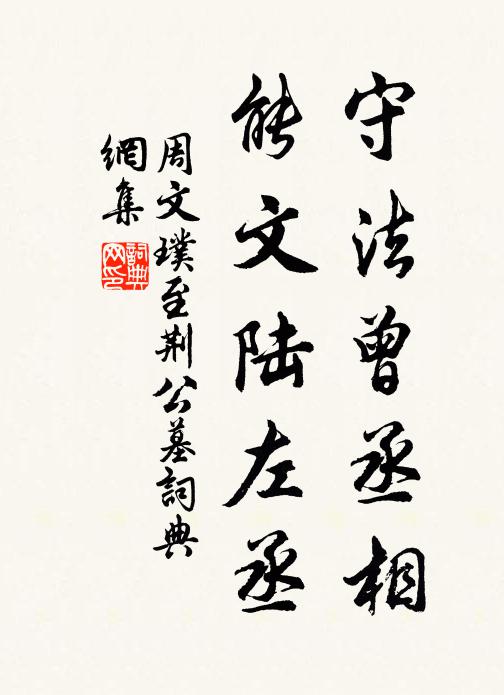 守法曾丞相
能文陸左丞
周文璞至荆公墓詞典
網集
詞典網印